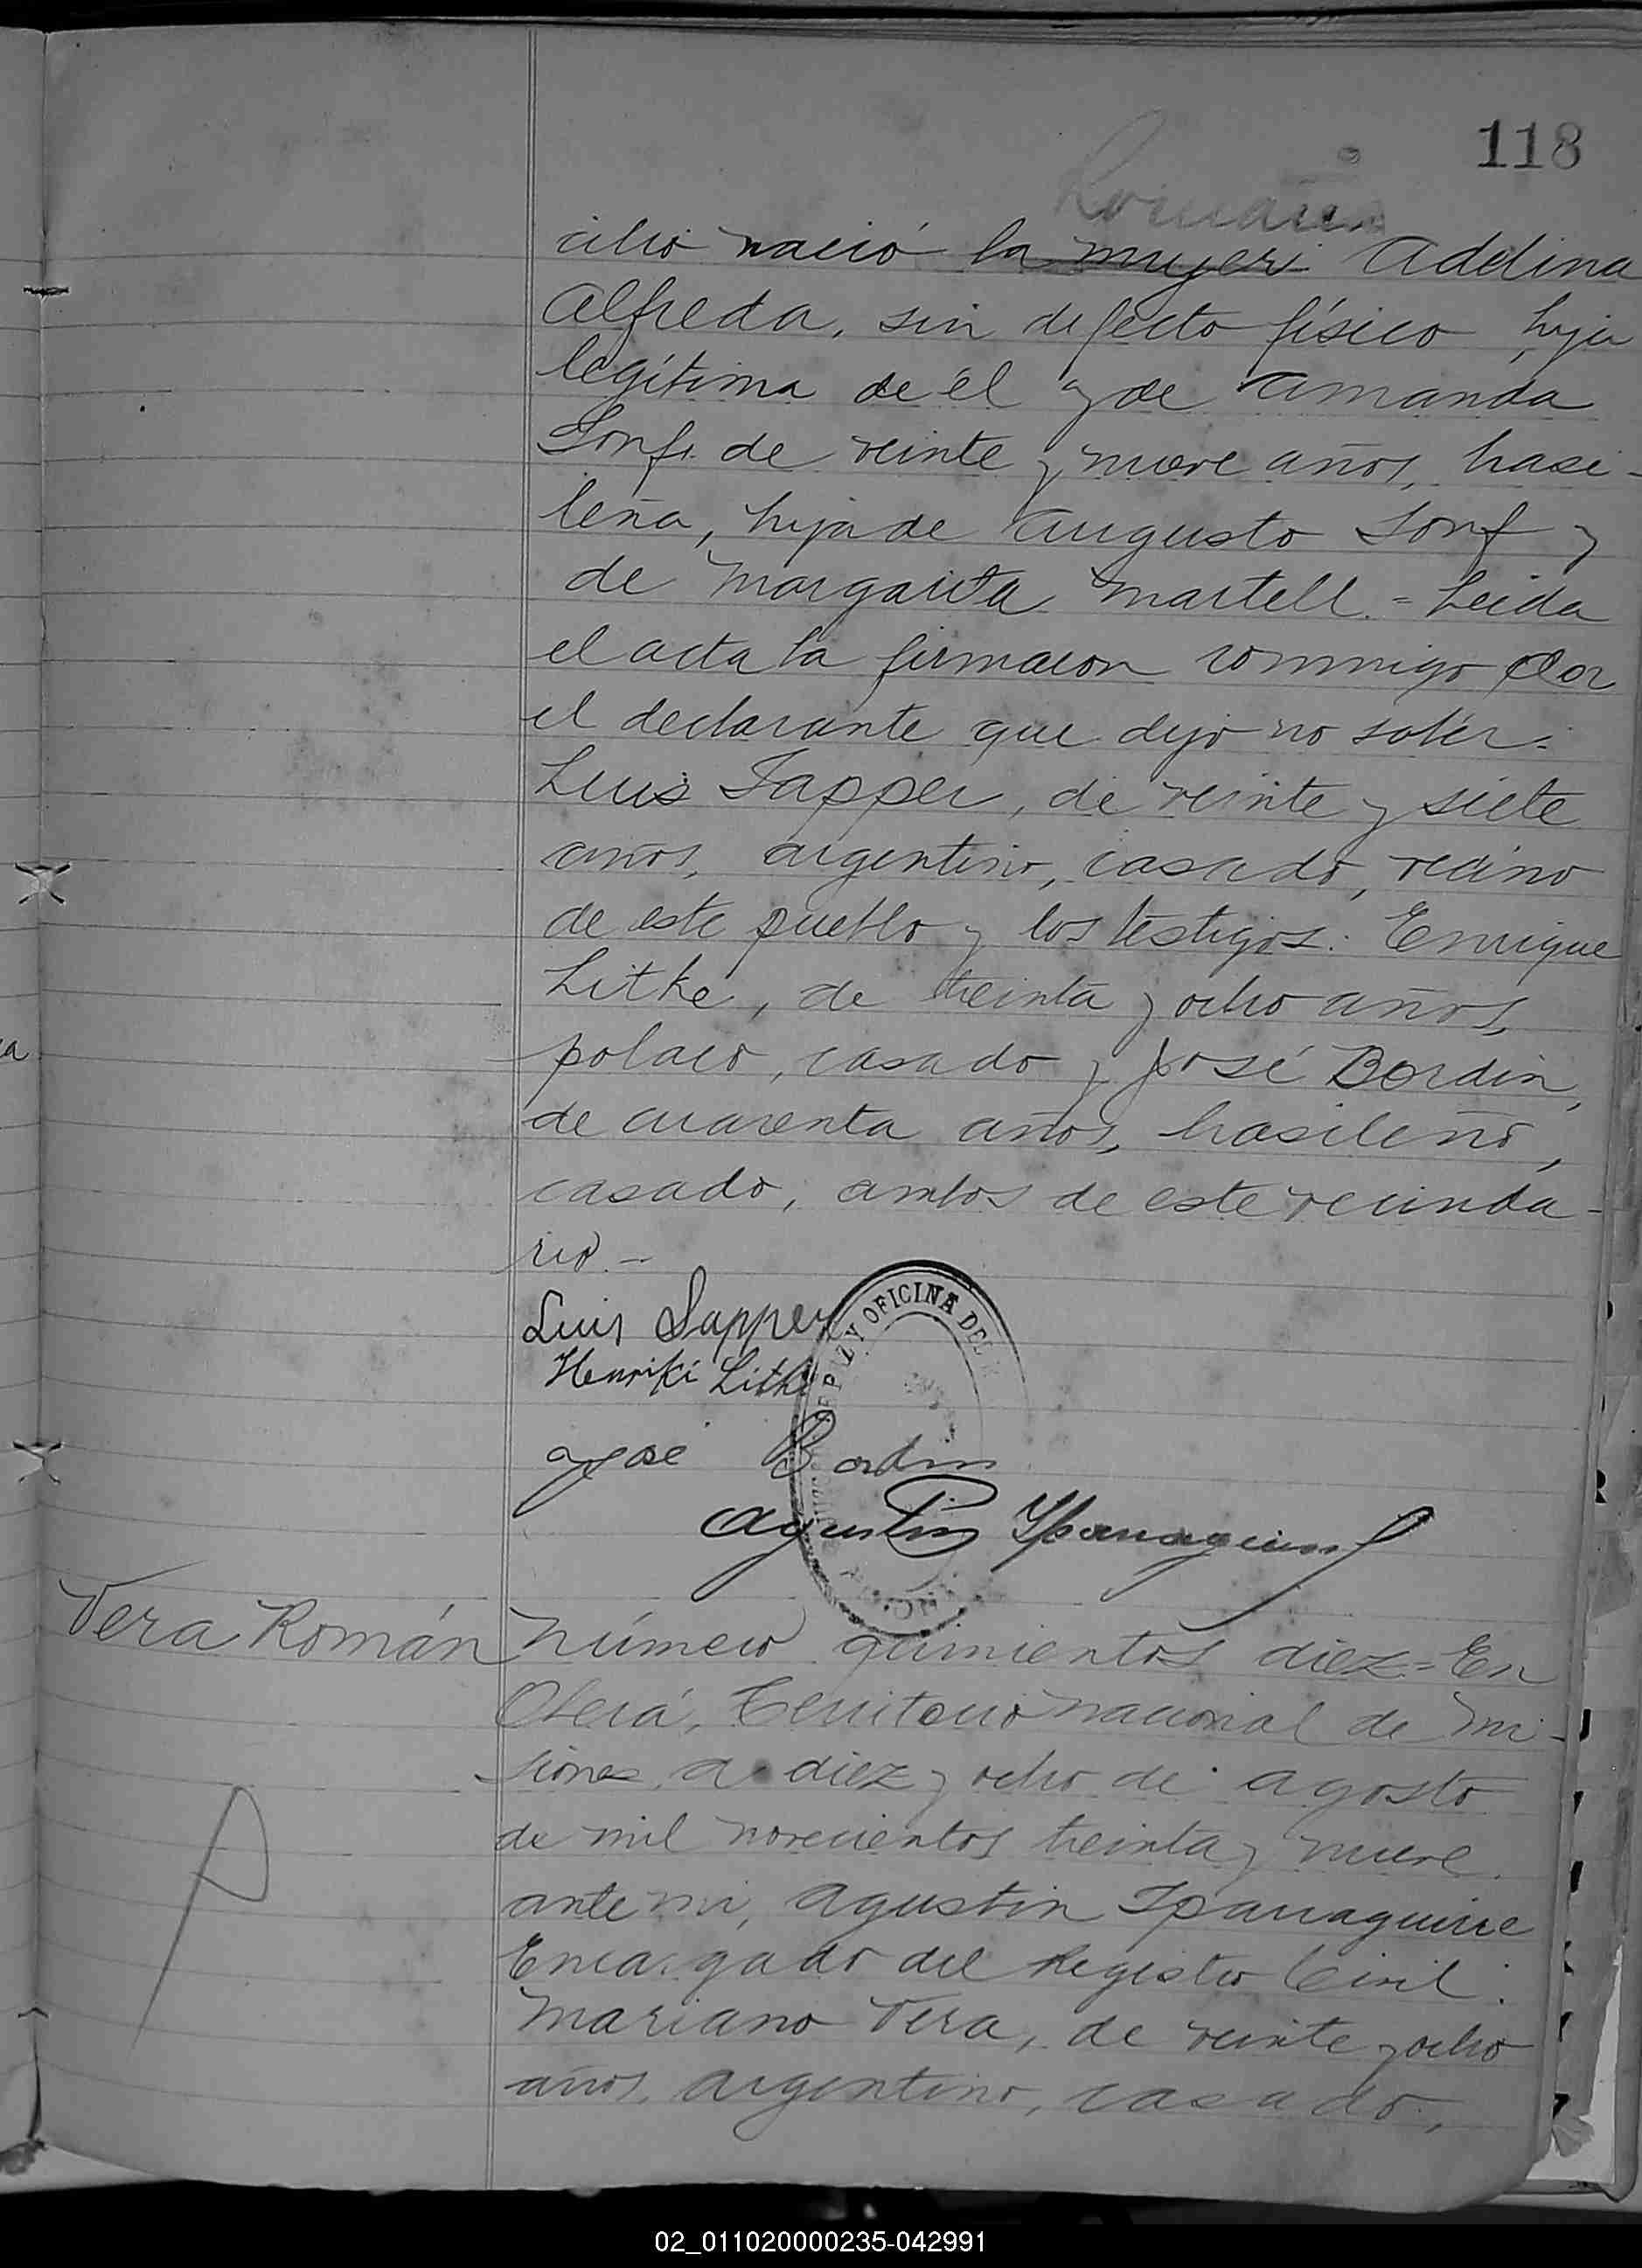 118
Román
cilio nació la mujer Adelina
Alfreda, sin defecto físico, hija
legítima de él y de Amanda
Sonf, de veinte y nueve años, brasi-
leña, hija de Augusto Sonf y
de Margarita Martell.= Leída
el acta la firmaron conmigo por
el declarante que dijo no saber:
Luis Sapper, de veinte y siete
años, argentino, casado, vecino
de este pueblo y los testigos: Enrique
Litke, de treinta y ocho años,
polaco, casado y José Bordin,
de cuarenta años, brasileño,
casado, ambos de este vecinda-
rio.-
Luis Sapper
Henriki Litke
José Bordin
Agustin Yparraguirre
PAZ Y OFICINA DEL
Vera Román
Número quinientos diez= En
Oberá, Territorio nacional de Mi-
siones, a diez y ocho de agosto
de mil novecientos treinta y nueve,
ante mi, Agustin Yparraguirre
Encargado del Registro Civil:
Mariano Vera, de veinte y ocho
años, argentino, casado,
a
02_011020000235-042991